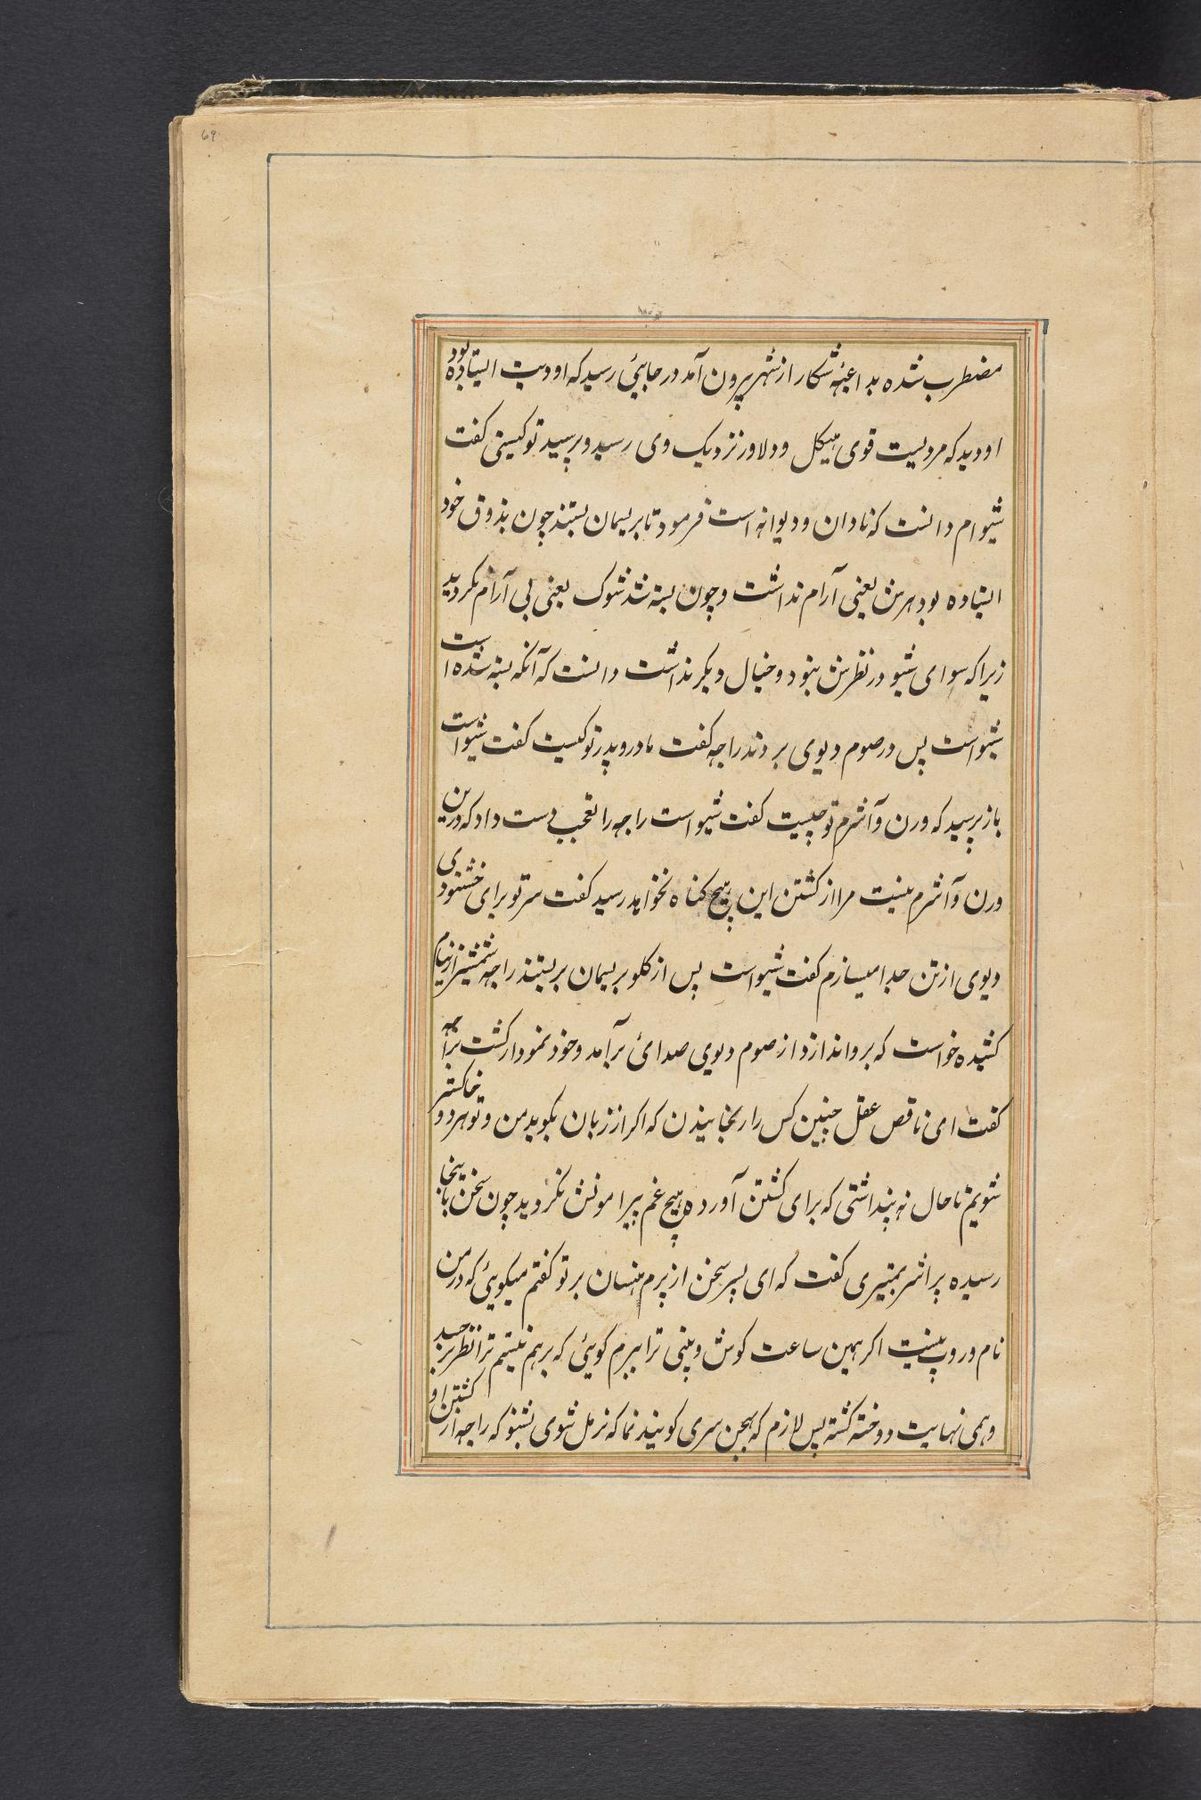 69
مضطرب شده بداعیهٔ شکار از شهر بیرون آمد در جایئی رسید که اودہت ایستاده بود
او دید که مردیست قوی هیکل و دلاور نزدیک وی رسید و پرسید تو کیستی کفت
شیوام دانست که نادان و دیوانه است فرمود تا بریسمان بستند چون بذوق خود
ایستاده بود هرش یعنی آرام نداشت و چون بسته شد شوک یعنی بی آرام نکردید
زیرا که سوای شیو در نظرش نبود و خیال دیکر نداشت دانست که آنکه بسته شده است
شیواست پس در صوم دیوی بردند راجه کفت مادر و پدر تو کیست کفت شیواست
باز پرسید که ورن و آشرم تو چیست کفت شیواست راجه را تعجب دست داد که درین
ورن و آشرم نیست مرا از کشتن این هیچ کناه نخواهد رسید کفت سر تو برای خشنودی
دیوی از تن جدا میسازم کفت شیواست پس از کلو بریسمان بربستند راجه شمشیر از نیام
کشیده خواست که برو اندازد از صوم دیوی صدائ برآمد و خود نمودار کشت براجه
کفت ای ناقص عقل چنین کس را رنجانیدن که اکر از زبان بکوید من و تو هر دو خاکستر
شویم تا حال نه پنداشتی که برای کشتن آورده هیچ غم پیرامونش نکردید چون سخن باینجا
رسیده پراشر بمیتری کفت که ای پسر سخن از پرم هنسان بر تو کفتم میکویئی که در من
نام و روپ نیست اکر همین ساعت کوش و بینی ترا ببرم کویئی که برهم نیستم ترا نظر بر جسد
وهمی نهایت دوخته کشته پس لازم که بهجن سری کوبیند نما که نرمل شوی بشنو که راجه از کشتن او